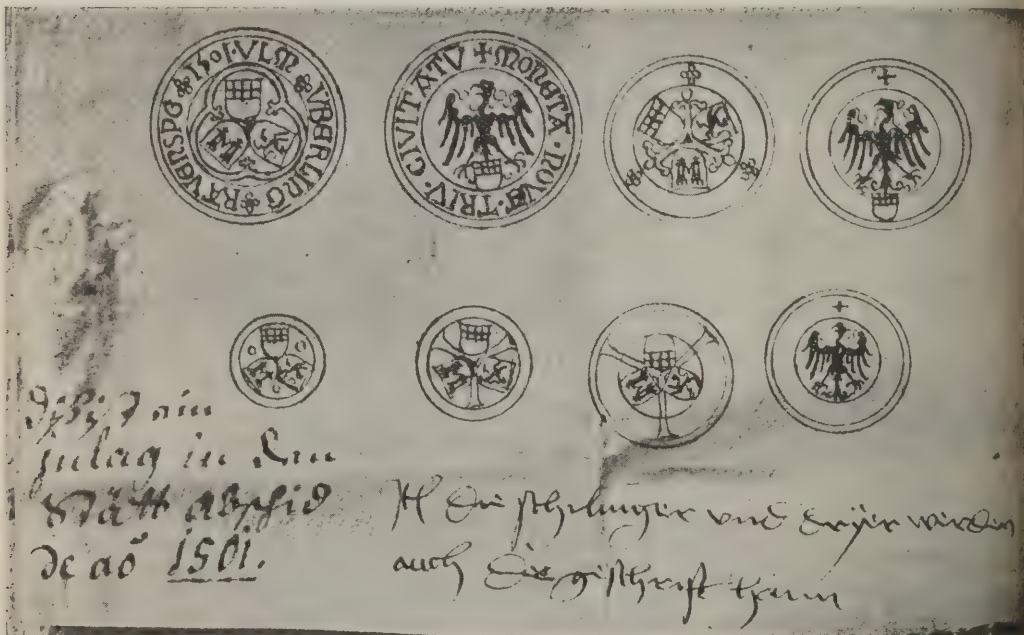 1501·VLM VBERLING RAVENSPG
+MONETA·NOVA·TRIV·CIVITATV
Diß ist ain
Inlag in den
Stätt abschid
de aõ 1501.
die schilinger vnd dryer werden
auch die geschrift